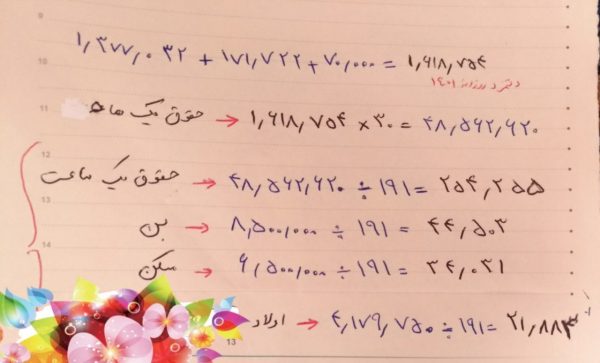 9
۱,۳۷۷,۰۳۲ + ۱۷۱,۷۲۲ + ۷۰,۰۰۰ = ۱,۶۱۸,۷۵۴
10
دستمزد روزانه ۱۴۰۱
11 حقوق یک ماه → ۱,۶۱۸,۷۵۴ × ۳۰ = ۴۸,۵۶۲,۶۲۰
12
حقوق یک ساعت → ۴۸,۵۶۲,۶۲۰ ÷ ۱۹۱ = ۲۵۴,۲۵۵
13
بن → ۸,۵۰۰,۰۰۰ ÷ ۱۹۱ = ۴۴,۵۰۳
14
مسکن → ۶,۵۰۰,۰۰۰ ÷ ۱۹۱ = ۳۴,۰۳۱
اولاد → ۴,۱۷۹,۷۵۰ ÷ ۱۹۱ = ۲۱,۸۸۳
13